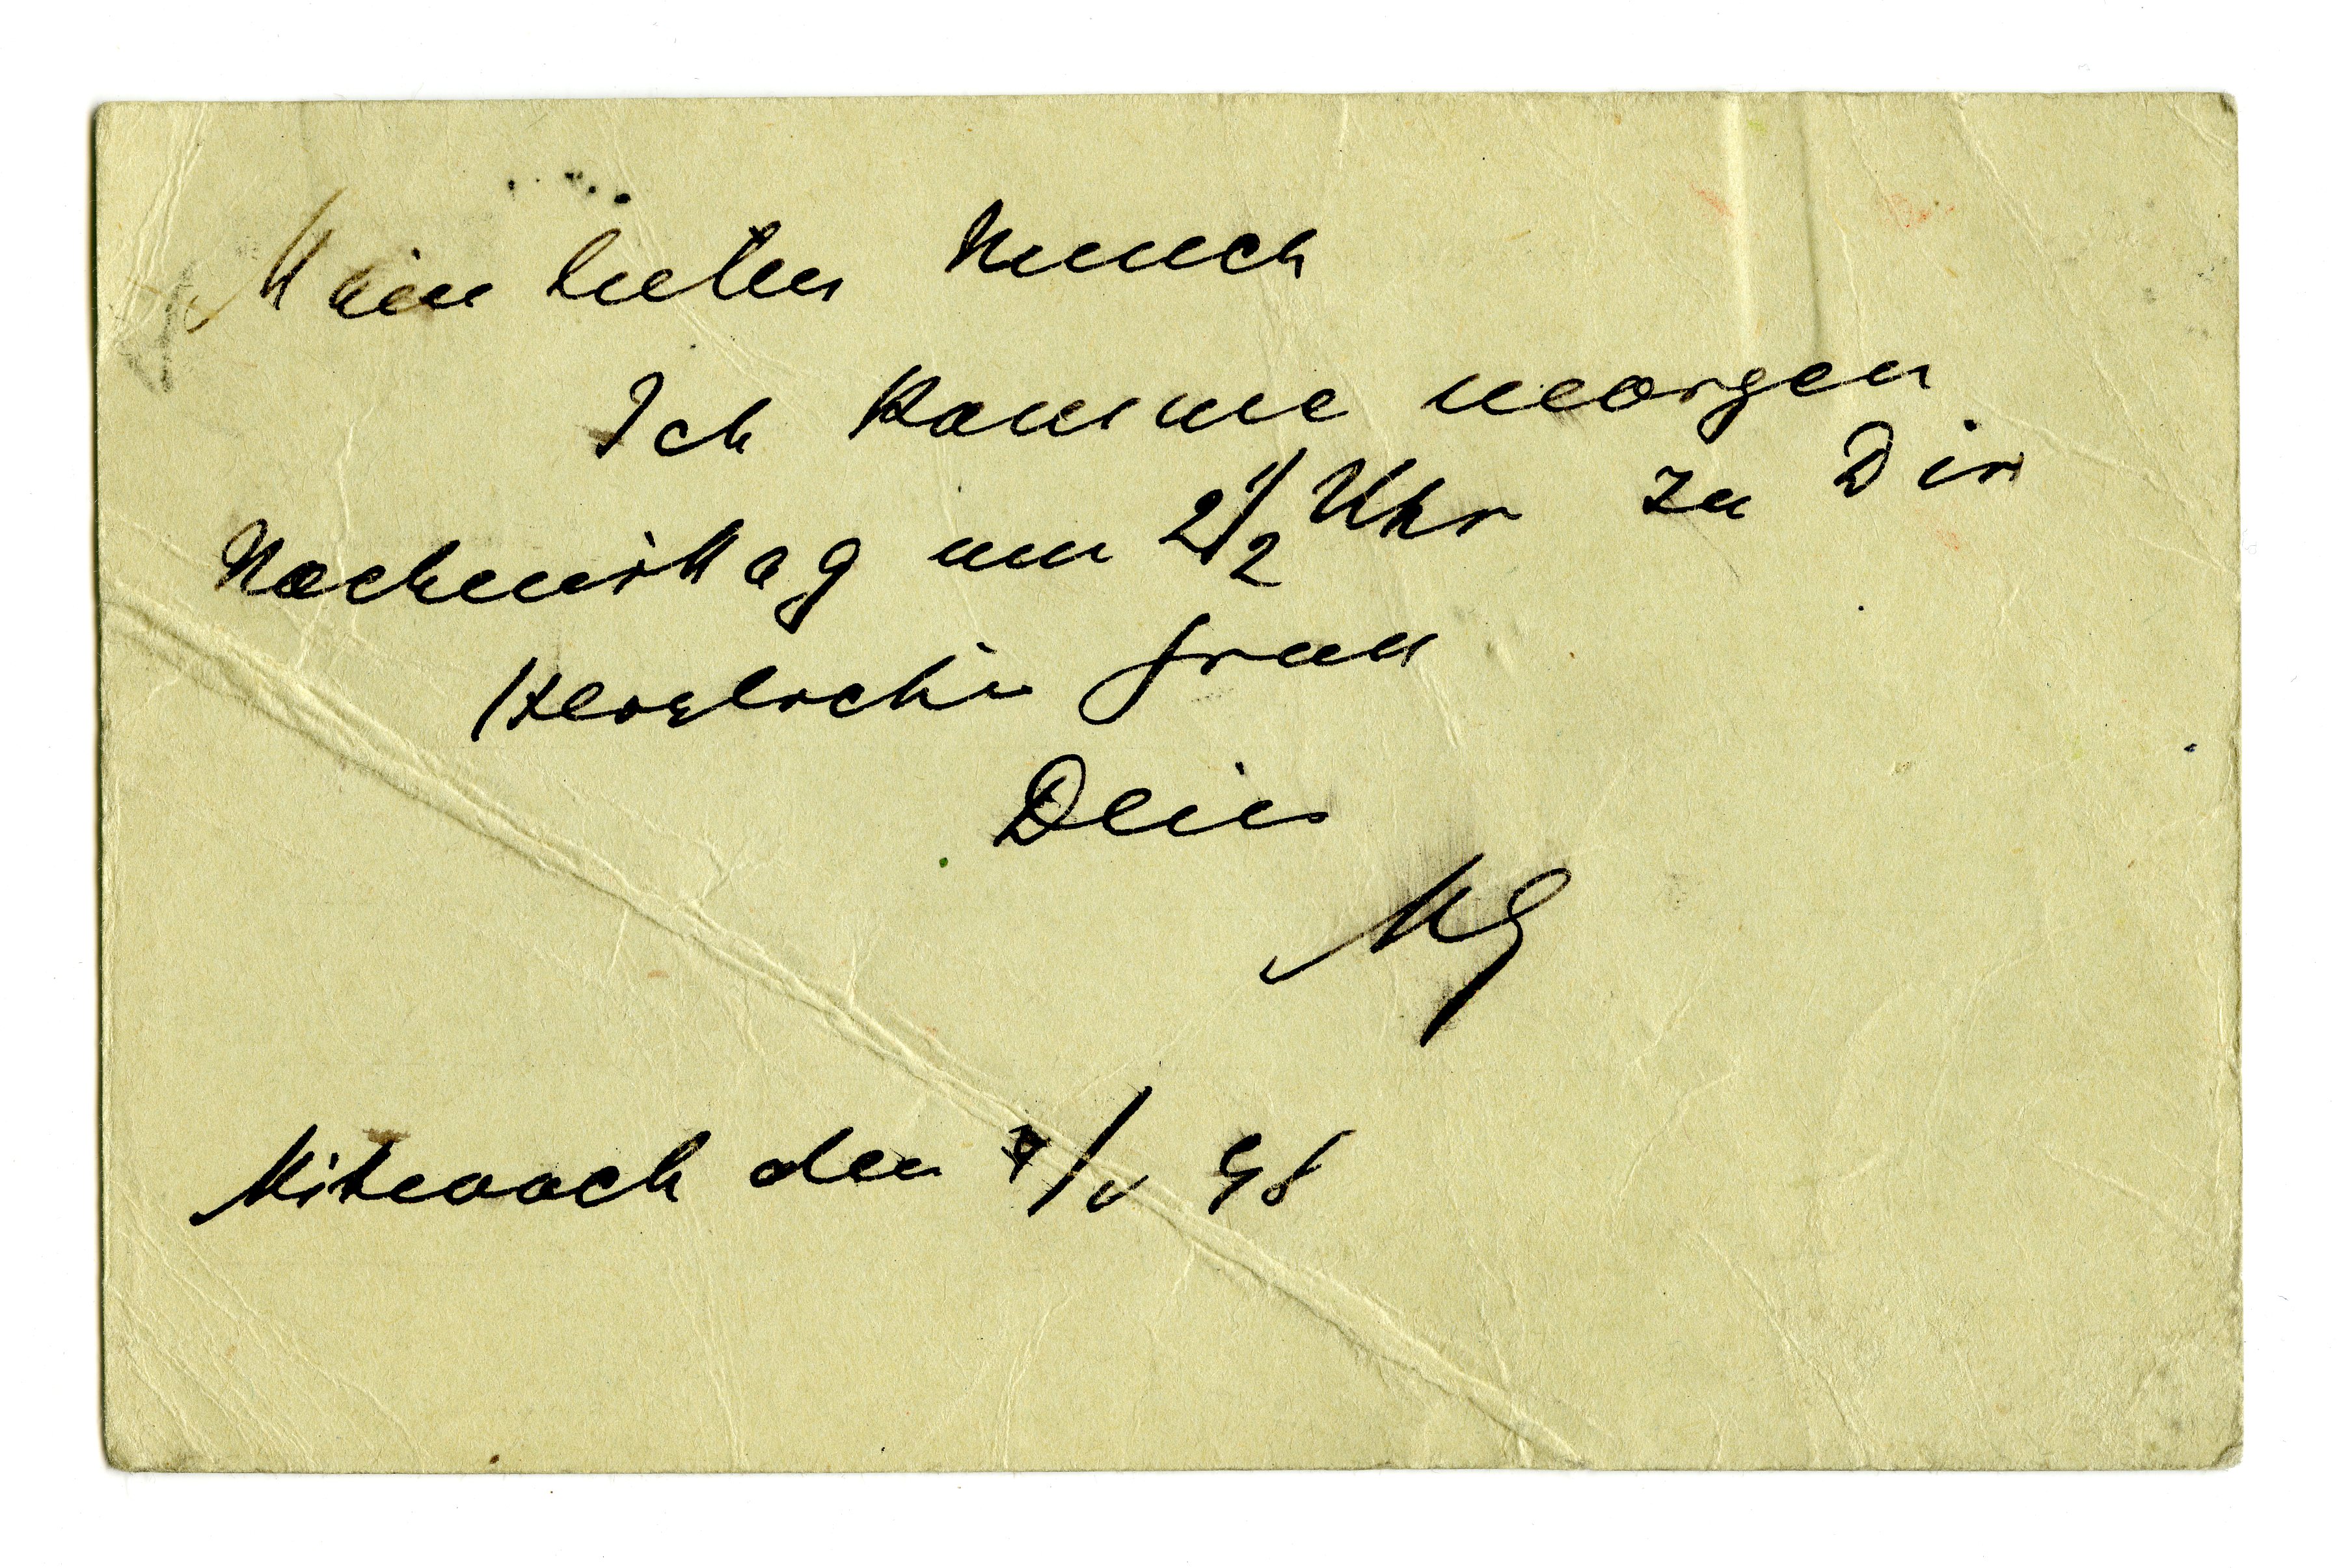 Mein lieber Munch
Ich komme morgen
Nachmittag um 2 1/2 Uhr zu Dir
Herzlichen Gruss
Dein
MG
Mittwoch den 4/V 98